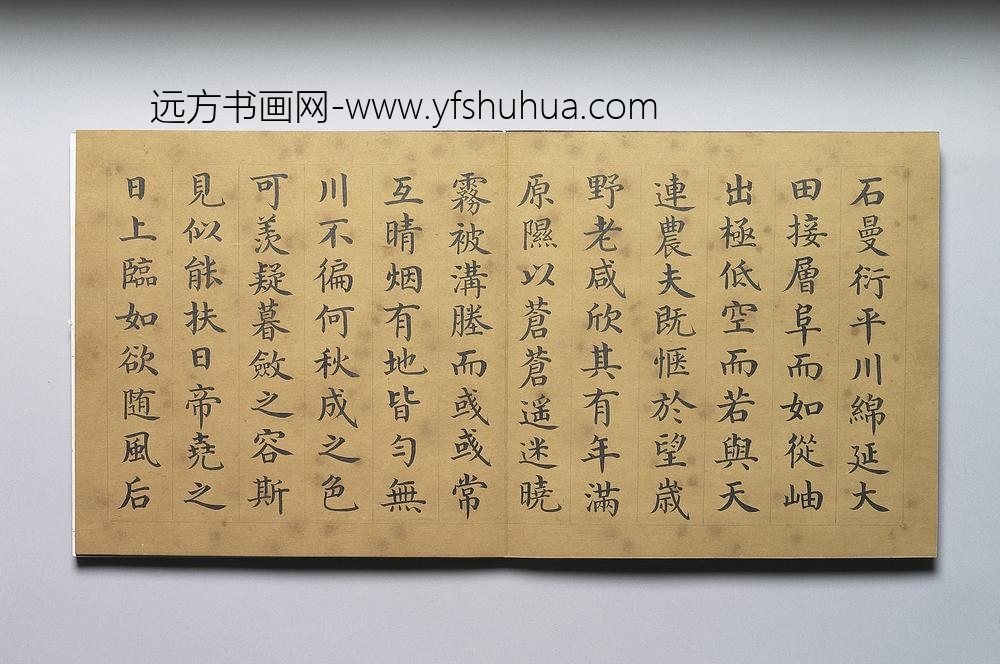 远方书画网-www.yfshuhua.com
石曼衍平川綿延大
田接層阜而如從岫
出極低空而若與天
連農夫既愜於望歲
野老咸欣其有年滿
原隰以蒼蒼遥迷曉
霧被溝塍而彧彧常
互晴烟有地皆勻無
川不徧何秋成之色
可羨疑暮斂之容斯
見似能扶日帝堯之
日上臨如欲随風后